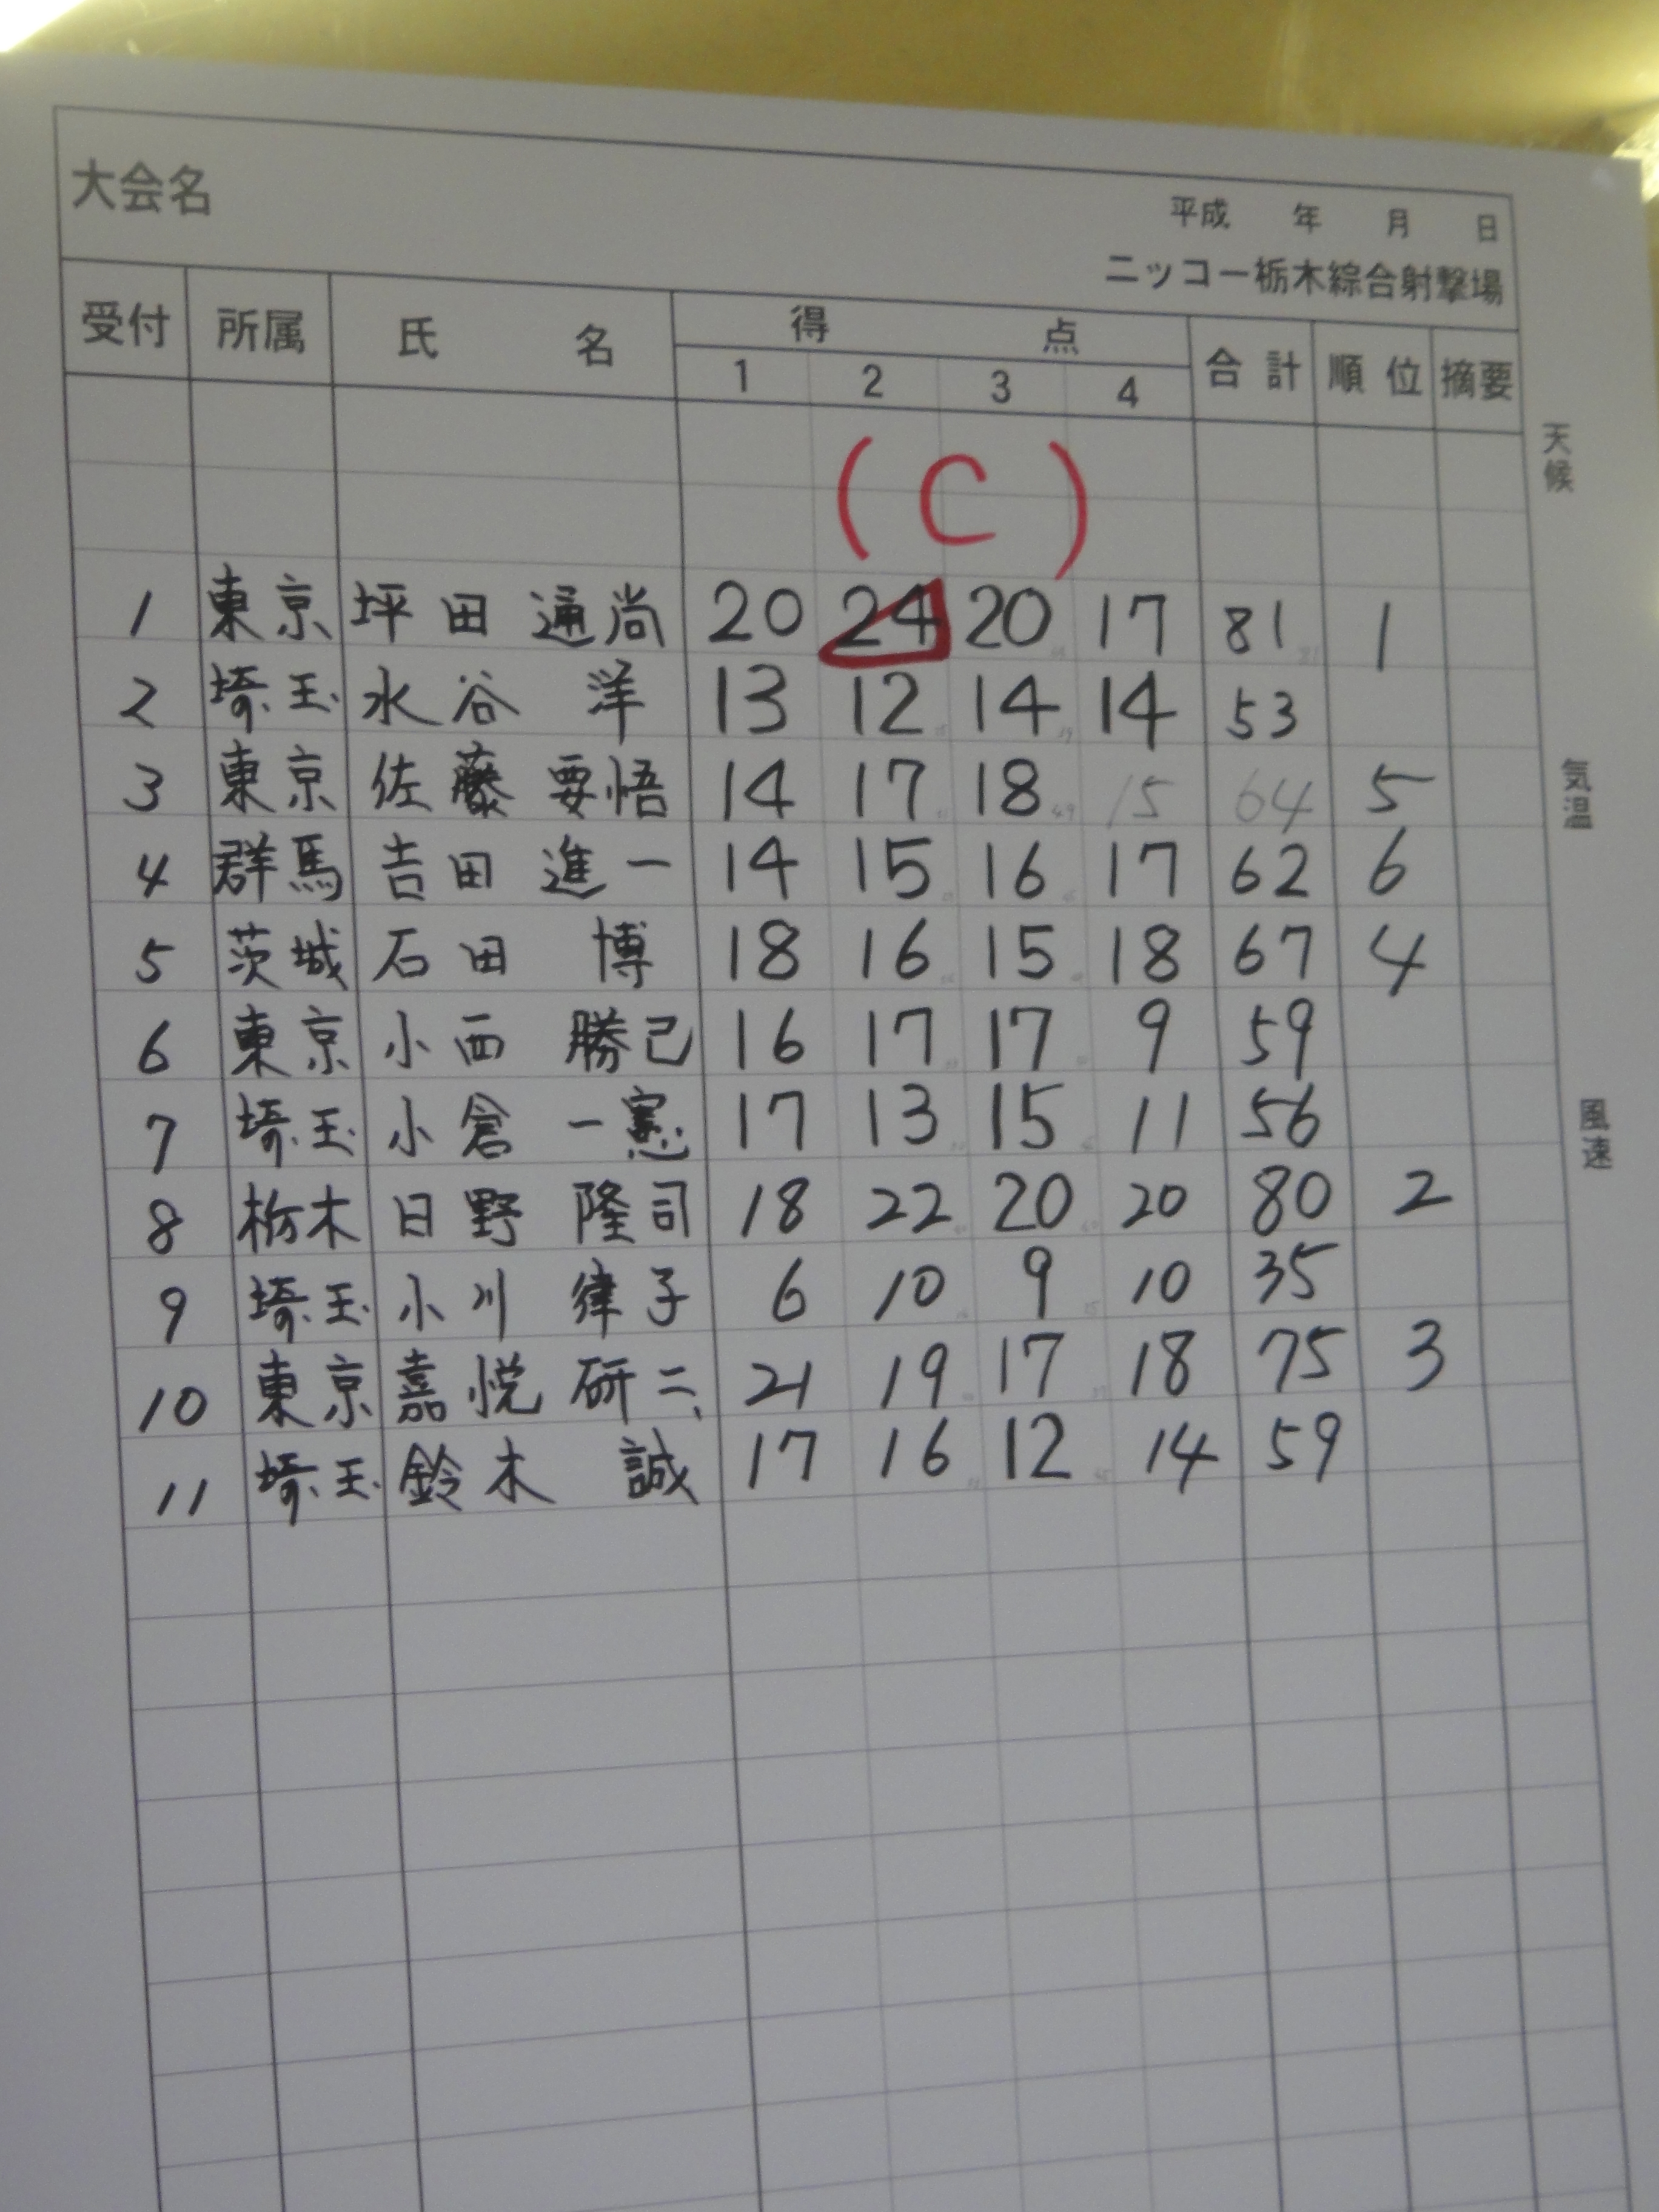 大会名
平成 年 月 日
ニッコー栃木綜合射撃場
受付 所属 氏 名 得 点 合計 順位 摘要
1 2 3 4
(C)
1 東京 坪田 通尚 20 24 20 17 81 1
2 埼玉 水谷 洋 13 12 14 14 53
3 東京 佐藤 要悟 14 17 18 15 64 5
4 群馬 吉田 進一 14 15 16 17 62 6
5 茨城 石田 博 18 16 15 18 67 4
6 東京 小西 勝己 16 17 17 9 59
7 埼玉 小倉 一憲 17 13 15 11 56
8 栃木 日野 隆司 18 22 20 20 80 2
9 埼玉 小川 律子 6 10 9 10 35
10 東京 嘉悦 研二 21 19 17 18 75 3
11 埼玉 鈴木 誠 17 16 12 14 59
天候
気温
風速